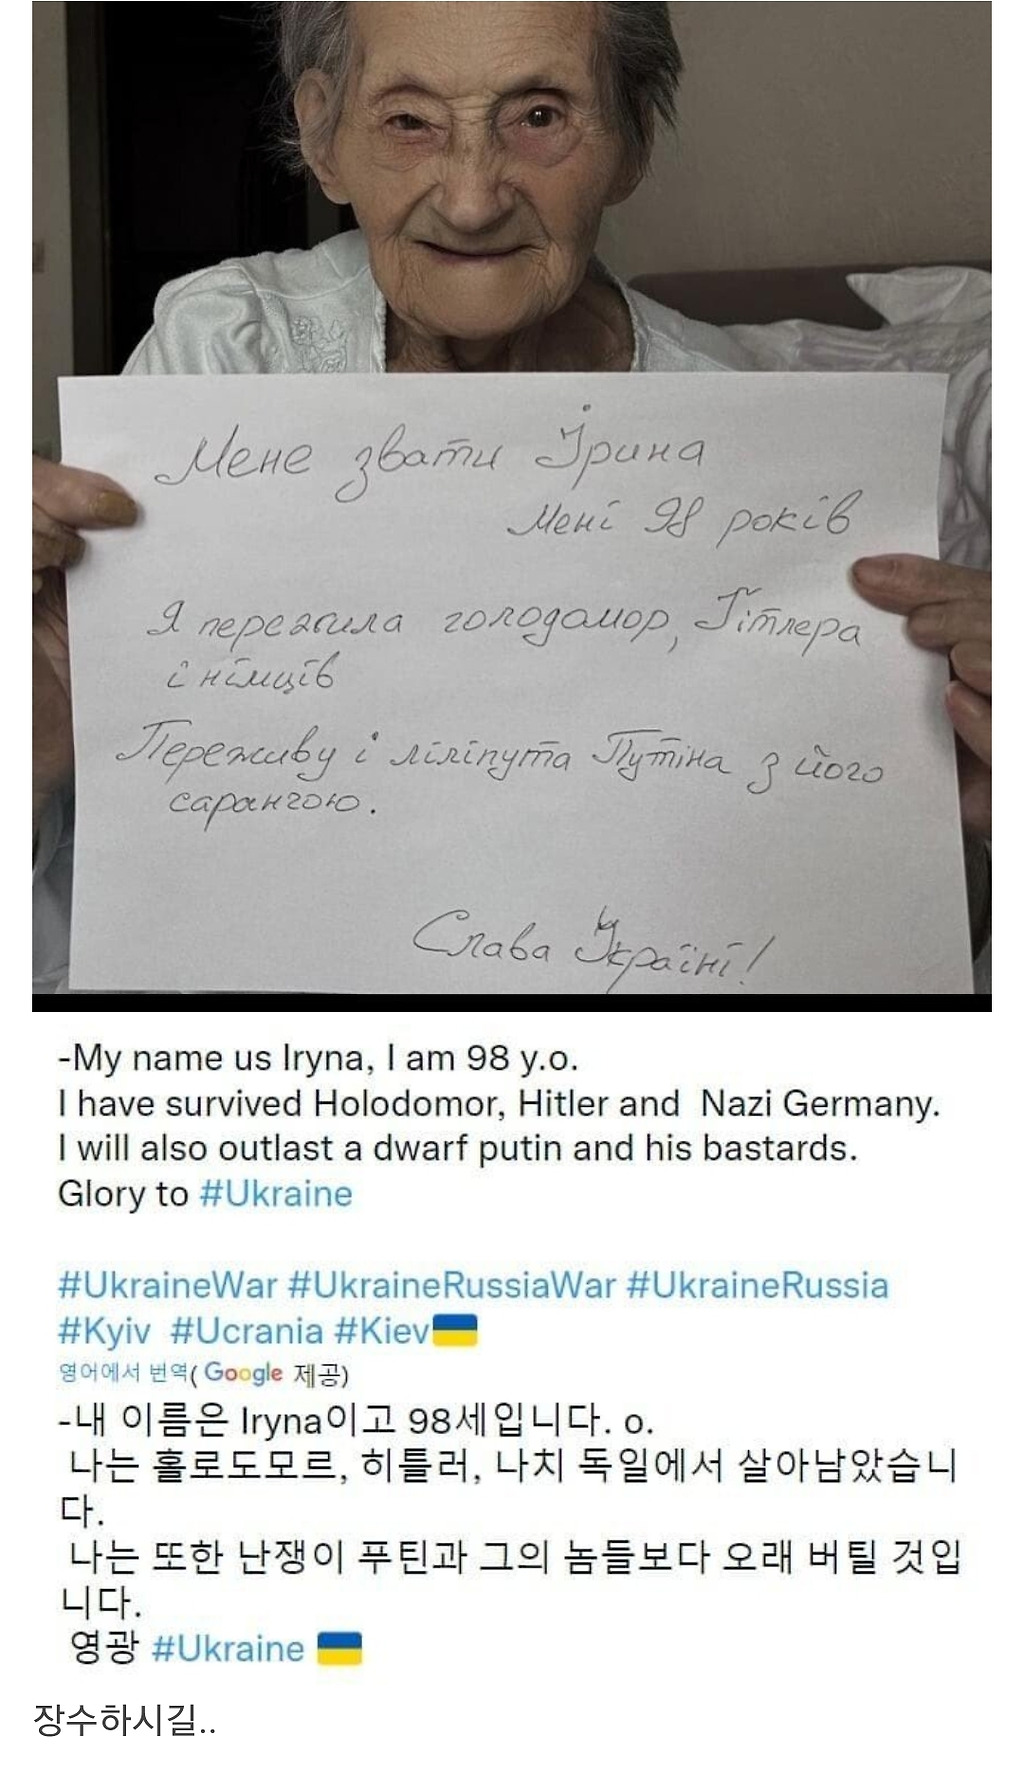 Мене звати Ірина
Мені 98 років
Я пережила голодомор, Гітлера
і німців
Переживу і ліліпута Путіна з його
сарангою.
Слава Україні!
-My name us Iryna, I am 98 y.o.
I have survived Holodomor, Hitler and Nazi Germany.
I will also outlast a dwarf putin and his bastards.
Glory to #Ukraine
#UkraineWar #UkraineRussiaWar #UkraineRussia
#Kyiv #Ucrania #Kiev
영어에서 번역( Google 제공)
-내 이름은 Iryna이고 98세입니다. o.
나는 홀로도모르, 히틀러, 나치 독일에서 살아남았습니
다.
나는 또한 난쟁이 푸틴과 그의 놈들보다 오래 버틸 것입
니다.
영광 #Ukraine
장수하시길..